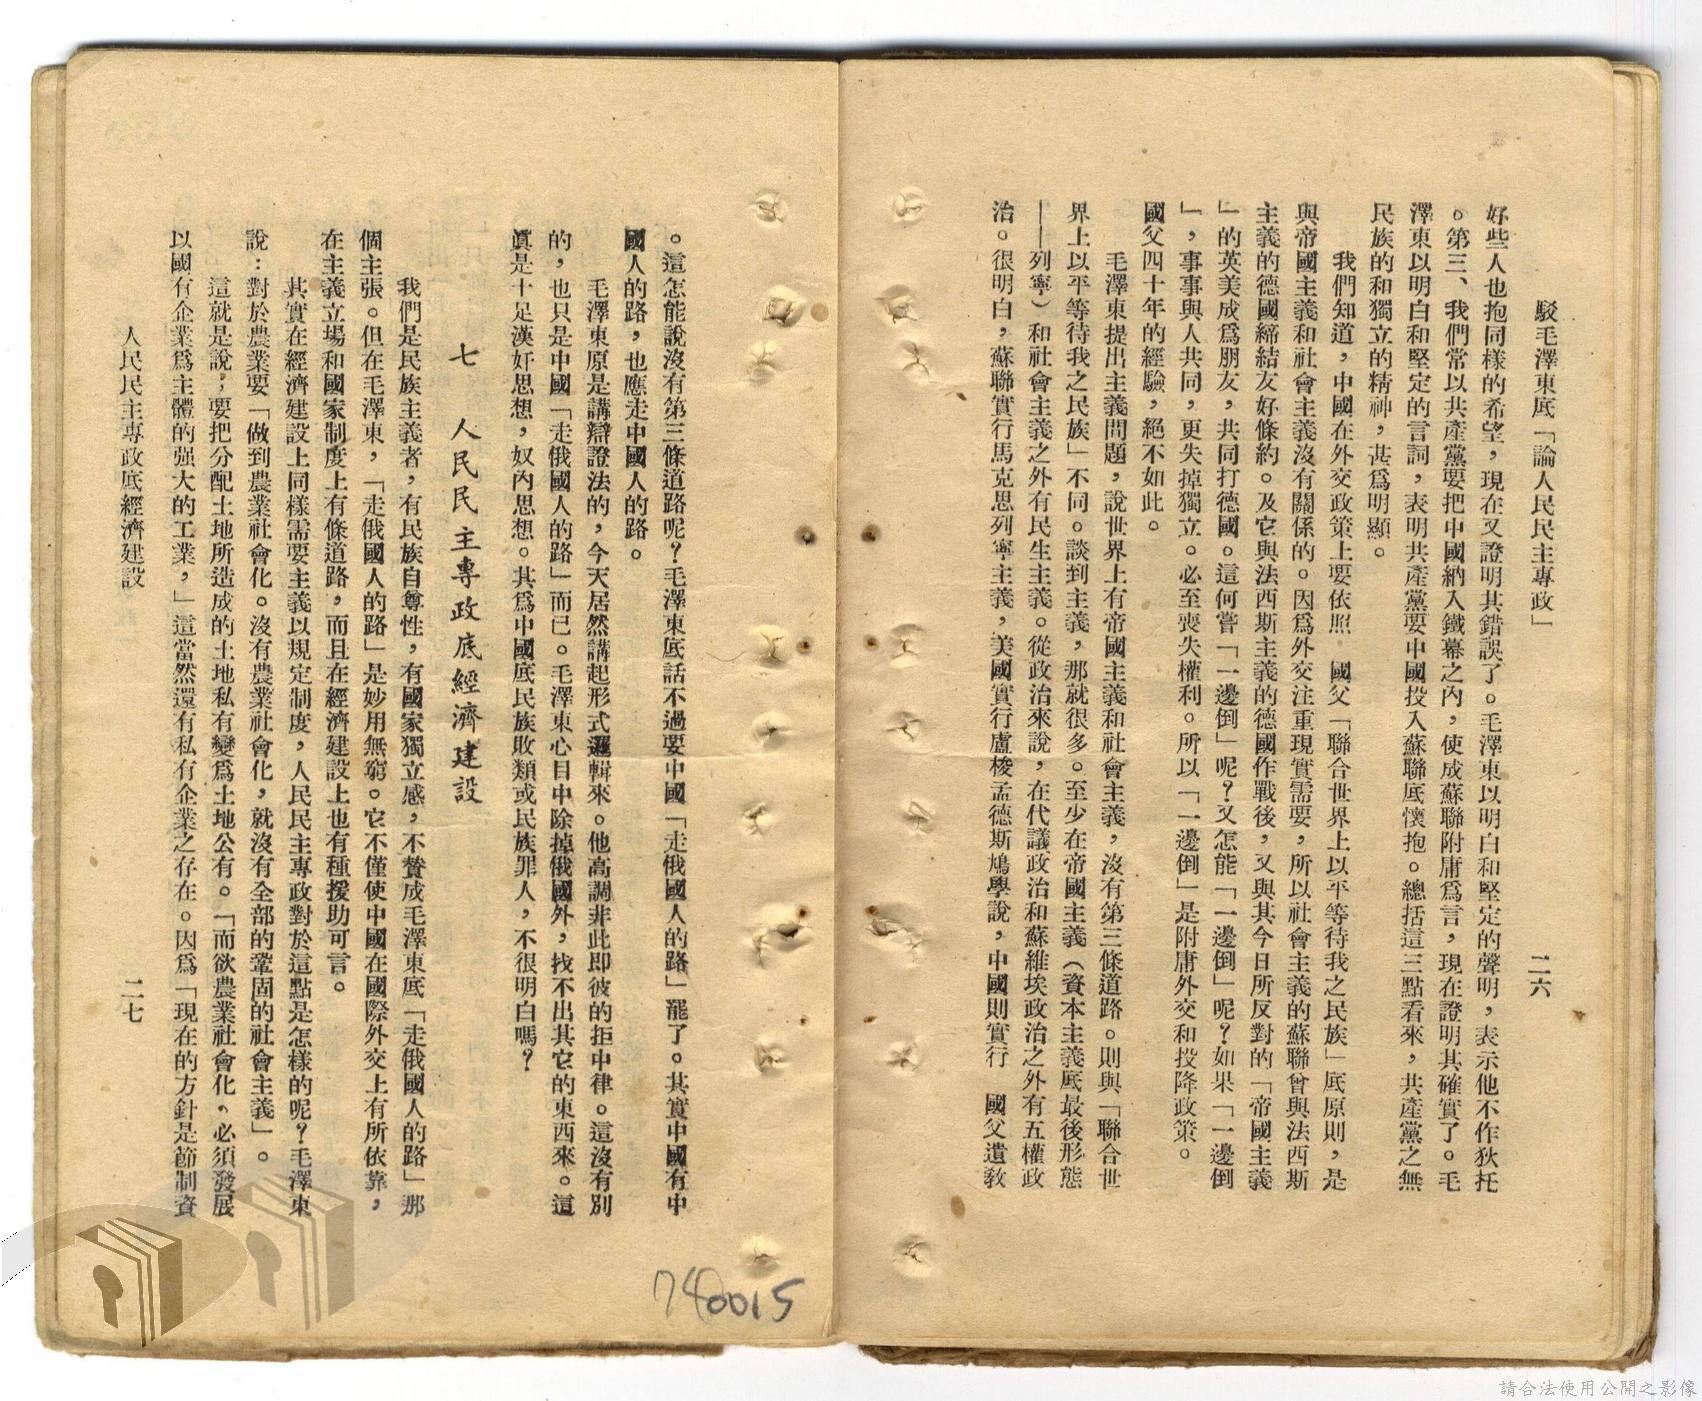 駁毛澤東底「論人民民主專政」
二六
好些人也抱同樣的希望，現在又證明其錯誤了。毛澤東以明白和堅定的聲明，表示他不作狄托
。第三、我們常以共產黨要把中國納入鐵幕之內，使成蘇聯附庸爲言，現在證明其確實了。毛
澤東以明白和堅定的言詞，表明共產黨要中國投入蘇聯底懷抱。總括這三點看來，共產黨之無
民族的和獨立的精神，甚爲明顯。
我們知道，中國在外交政策上要依照　國父「聯合世界上以平等待我之民族」底原則，是
與帝國主義和社會主義沒有關係的。因爲外交注重現實需要，所以社會主義的蘇聯曾與法西斯
主義的德國締結友好條約。及它與法西斯主義的德國作戰後，又與其今日所反對的「帝國主義
」的英美成爲朋友，共同打德國。這何嘗「一邊倒」呢？又怎能「一邊倒」呢？如果「一邊倒
」，事事與人共同，更失掉獨立。必至喪失權利。所以「一邊倒」是附庸外交和投降政策。
國父四十年的經驗，絕不如此。
毛澤東提出主義問題，說世界上有帝國主義和社會主義，沒有第三條道路。則與「聯合世
界上以平等待我之民族」不同。談到主義，那就很多。至少在帝國主義（資本主義底最後形態
——列寧）和社會主義之外有民生主義。從政治來說，在代議政治和蘇維埃政治之外有五權政
治。很明白，蘇聯實行馬克思列寧主義，美國實行盧梭孟德斯鳩學說，中國則實行　國父遺敎
。這怎能說沒有第三條道路呢？毛澤東底話不過要中國「走俄國人的路」罷了。其實中國有中
國人的路，也應走中國人的路。
毛澤東原是講辯證法的，今天居然講起形式邏輯來。他高調非此即彼的拒中律。這沒有別
的，也只是中國「走俄國人的路」而已。毛澤東心目中除掉俄國外，找不出其它的東西來。這
眞是十足漢奸思想，奴內思想。其爲中國底民族敗類或民族罪人，不很明白嗎？
七　人民民主專政底經濟建設
我們是民族主義者，有民族自尊性，有國家獨立感，不贊成毛澤東底「走俄國人的路」那
個主張。但在毛澤東，「走俄國人的路」是妙用無窮。它不僅使中國在國際外交上有所依靠，
在主義立場和國家制度上有條道路，而且在經濟建設上也有種援助可言。
其實在經濟建設上同樣需要主義以規定制度，人民民主專政對於這點是怎樣的呢？毛澤東
說：對於農業要「做到農業社會化。沒有農業社會化，就沒有全部的鞏固的社會主義」。
這就是說；要把分配土地所造成的土地私有變爲土地公有。「而欲農業社會化，必須發展
以國有企業爲主體的强大的工業，」這當然還有私有企業之存在。因爲「現在的方針是節制資
人民民主專政底經濟建設
二七
740015
請合法使用公開之影像